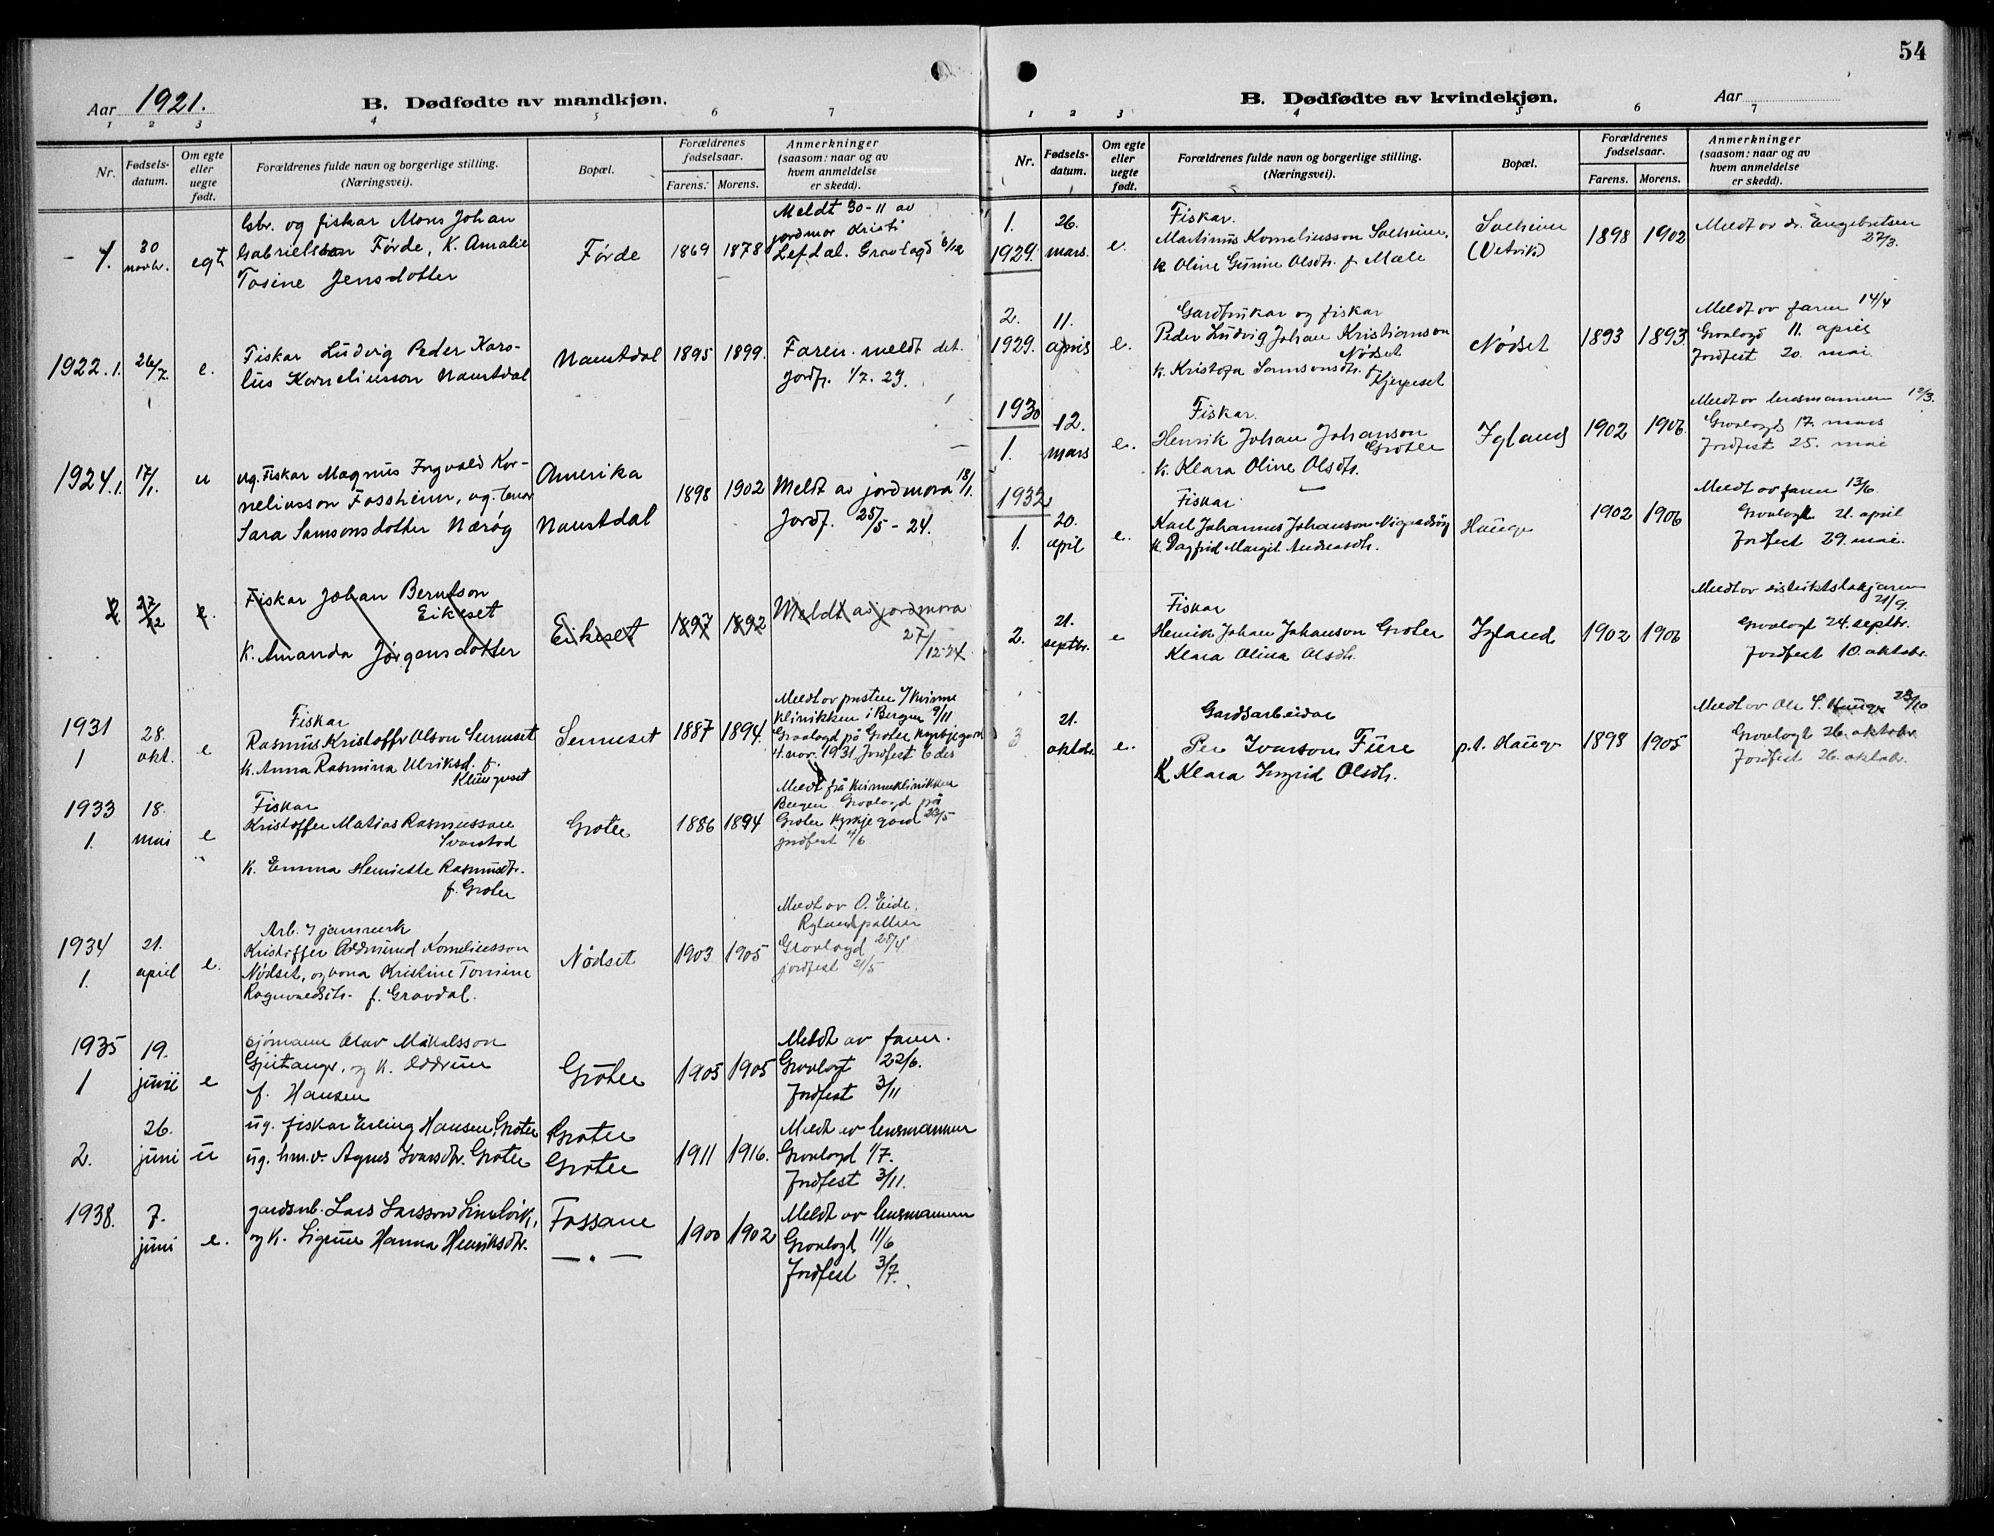 Aar 1921.
B. Dødfødte av mandkjøn.
1 2 3 4 5 6 7
Nr.
Fødsels-
datum.
Om egte
eller
uegte
født.
Forældrenes fulde navn og borgerlige stilling.
(Næringsvei).
Bopæl.
Forældrenes
fødselsaar.
Farens. Morens.
Anmerkninger
(saasom: naar og av
hvem anmeldelse
er skedd).
1. 30 novbr. egt.
Gbr. og fiskar Mons Johan
Gabrielson Førde, K. Amalie
Tosine Jensdotter
Førde 1869 1878
Meldt 30-11 av
jordmor Kristi
Lefdal. Gravlagd 6/12
1922. 1. 26/7. e.
Fiskar Ludvig Peder Karo-
lius Korneliusson Naustdal
Naustdal 1895 1899.
Faren meldt det.
Jordf. 1/7. 23.
1924. 1. 17/1. u
ug. Fiskar Magnus Ingvald Kor-
neliusson Fossheim, ug.
Sara Samsonsdotter Nærøg
Amerika
Naustdal
1898 1902
Meldt av jordmora 18/1.
Jordf. 25/5 - 24.
2. 27/12 e.
Fiskar Johan Berntson
Eikeset
K. Amanda Jørgensdotter
Eikeset 1897 1892
Meldt av jordmora
27/12-24
1931
1 28. okt. e
Fiskar
Rasmus Kristoffer Olson Semeset
K. Anna Rasmina Ulriksd. f.
Semeset 1887 1894.
Meldt ov presten v/ Kvinne
klinikken i Bergen 9/11
Gravlagd på Grotle
4. nov. 1931. Jordfest 6 des
1933
1. 18. mai e
Fiskar
Kristoffer Matias Rasmusson
Svarstad
K. Emma Henriette Rasmusdtr.
f. Grotle
Grotle 1886 1894
Meldt frå kvinneklinikken
Bergen Gravlagd på
Grotle kyrkjegard 22/5
jordfest 4/6
1934
1. 21. april e.
Arb. v/ jarnverk
Kristoffer Oddmund Korneliusson
Nødset, og kona Kristine Tomine
Ragnvaldsdtr. f. Gravdal.
Nødset 1903 1905
Meldt ov O. Eide.
Ryland
Gravlagd 28/4
jordfest 21/5
1935
1 19. juni e
sjømann Olav Mikalsson
Gjeitanger, og K. Oddrun
f. Hansen
Grotle 1905 1905
Meldt av faren.
Gravlagt 22/6.
Jordfest 3/11
2. 26. juni u
ug. fiskar Erling Hansen Grotle
ug. hmd. Agnes Ivarsdtr. Grotle
Grotle
Grotle
1911 1916.
Meldt ov lensmannen
Gravlagd 1/7.
Jordfest 3/11.
1938. 7. juni e.
gardsarb. Lars Larsson
og K. Sigrun Hanna Henriksdtr.
Fossane
— . —
1900 1902
Meldt ov lensmannen
Gravlagt 11/6
Jordfest 3/7.
54
B. Dødfødte av kvindekjøn.
Aar
1 2 3 4 5 6 7
Nr.
Fødsels-
datum.
Om egte
eller
uegte
født.
Forældrenes fulde navn og borgerlige stilling.
(Næringsvei).
Bopæl.
Forældrenes
fødselsaar.
Farens. Morens.
Anmerkninger
(saasom: naar og av
hvem anmeldelse
er skedd).
1.
1929. 26. mars. e.
Fiskar.
Martinus Korneliusson Solheim,
K. Oline Gurine Olsdtr. f. Mæle
Solheim
(Vetvik)
1898 1902
Meldt ov dr. Engebretsen
27/3.
2.
1929. 11. april e.
Gardbrukar og fiskar
Peder Ludvig Johan Kristianson
Nødset
K. Kristofa Samsonsdtr. f.
Kjerpeset
Nødset 1893 1893.
Meldt ov faren 14/4
Gravlagd 11. april
Jordfest 20. mai
1930
1. 12. mars e.
Fiskar.
Henrik Johan Johanson
Grotle
K. Klara Oline Olsdtr.
Igland 1902 1906.
Meldt ov lensmannen 12/3.
Gravlagd 17. mars
Jordfest 25. mai
1932
1. 20. april e.
Fiskar
Karl Johannes Johanson
K. Dagfrid Margit Andersdtr.
Hauge 1902 1906
Meldt ov faren 13/6.
Gravlagt 21. april
Jordfest 29. mai.
2. 21. septbr. e
Fiskar
Henrik Johan Johanson Grotle
Klara Olina Olsdtr.
Igland 1902 1906
Meldt ov distriktslækjaren
21/9.
Gravlagt 24. septbr.
Jordfest 10. oktobr.
3 21. oktobr. e.
Gardsarbeidar
Per Ivarson Fure
K. Klara Ingrid Olsdtr.
p.t. Hauge 1898 1905
Meldt ov Ole S. Hauge 23/10
Gravlagt 26. oktobr.
Jordfest 26. oktobr.